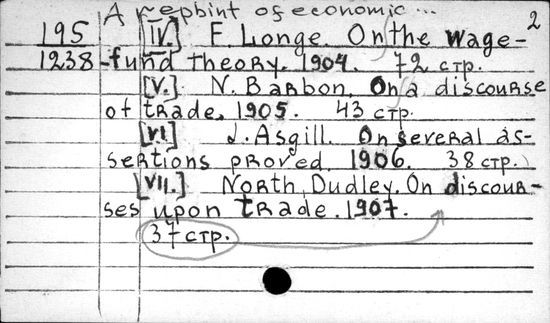 A repbint of economic... 2
195 [IV.] F. Longe. On the wage-
1238 -fund theory. 1904. 72 стр.
[V.] N. Barbon. On a discourse
of trade. 1905. 43 стр.
[VI.] J. Asgill. On several as-
sertions proved. 1906. 38 стр.
[VII.] North, Dudley. On discour-
ses upon trade. 1907.
37 стр.